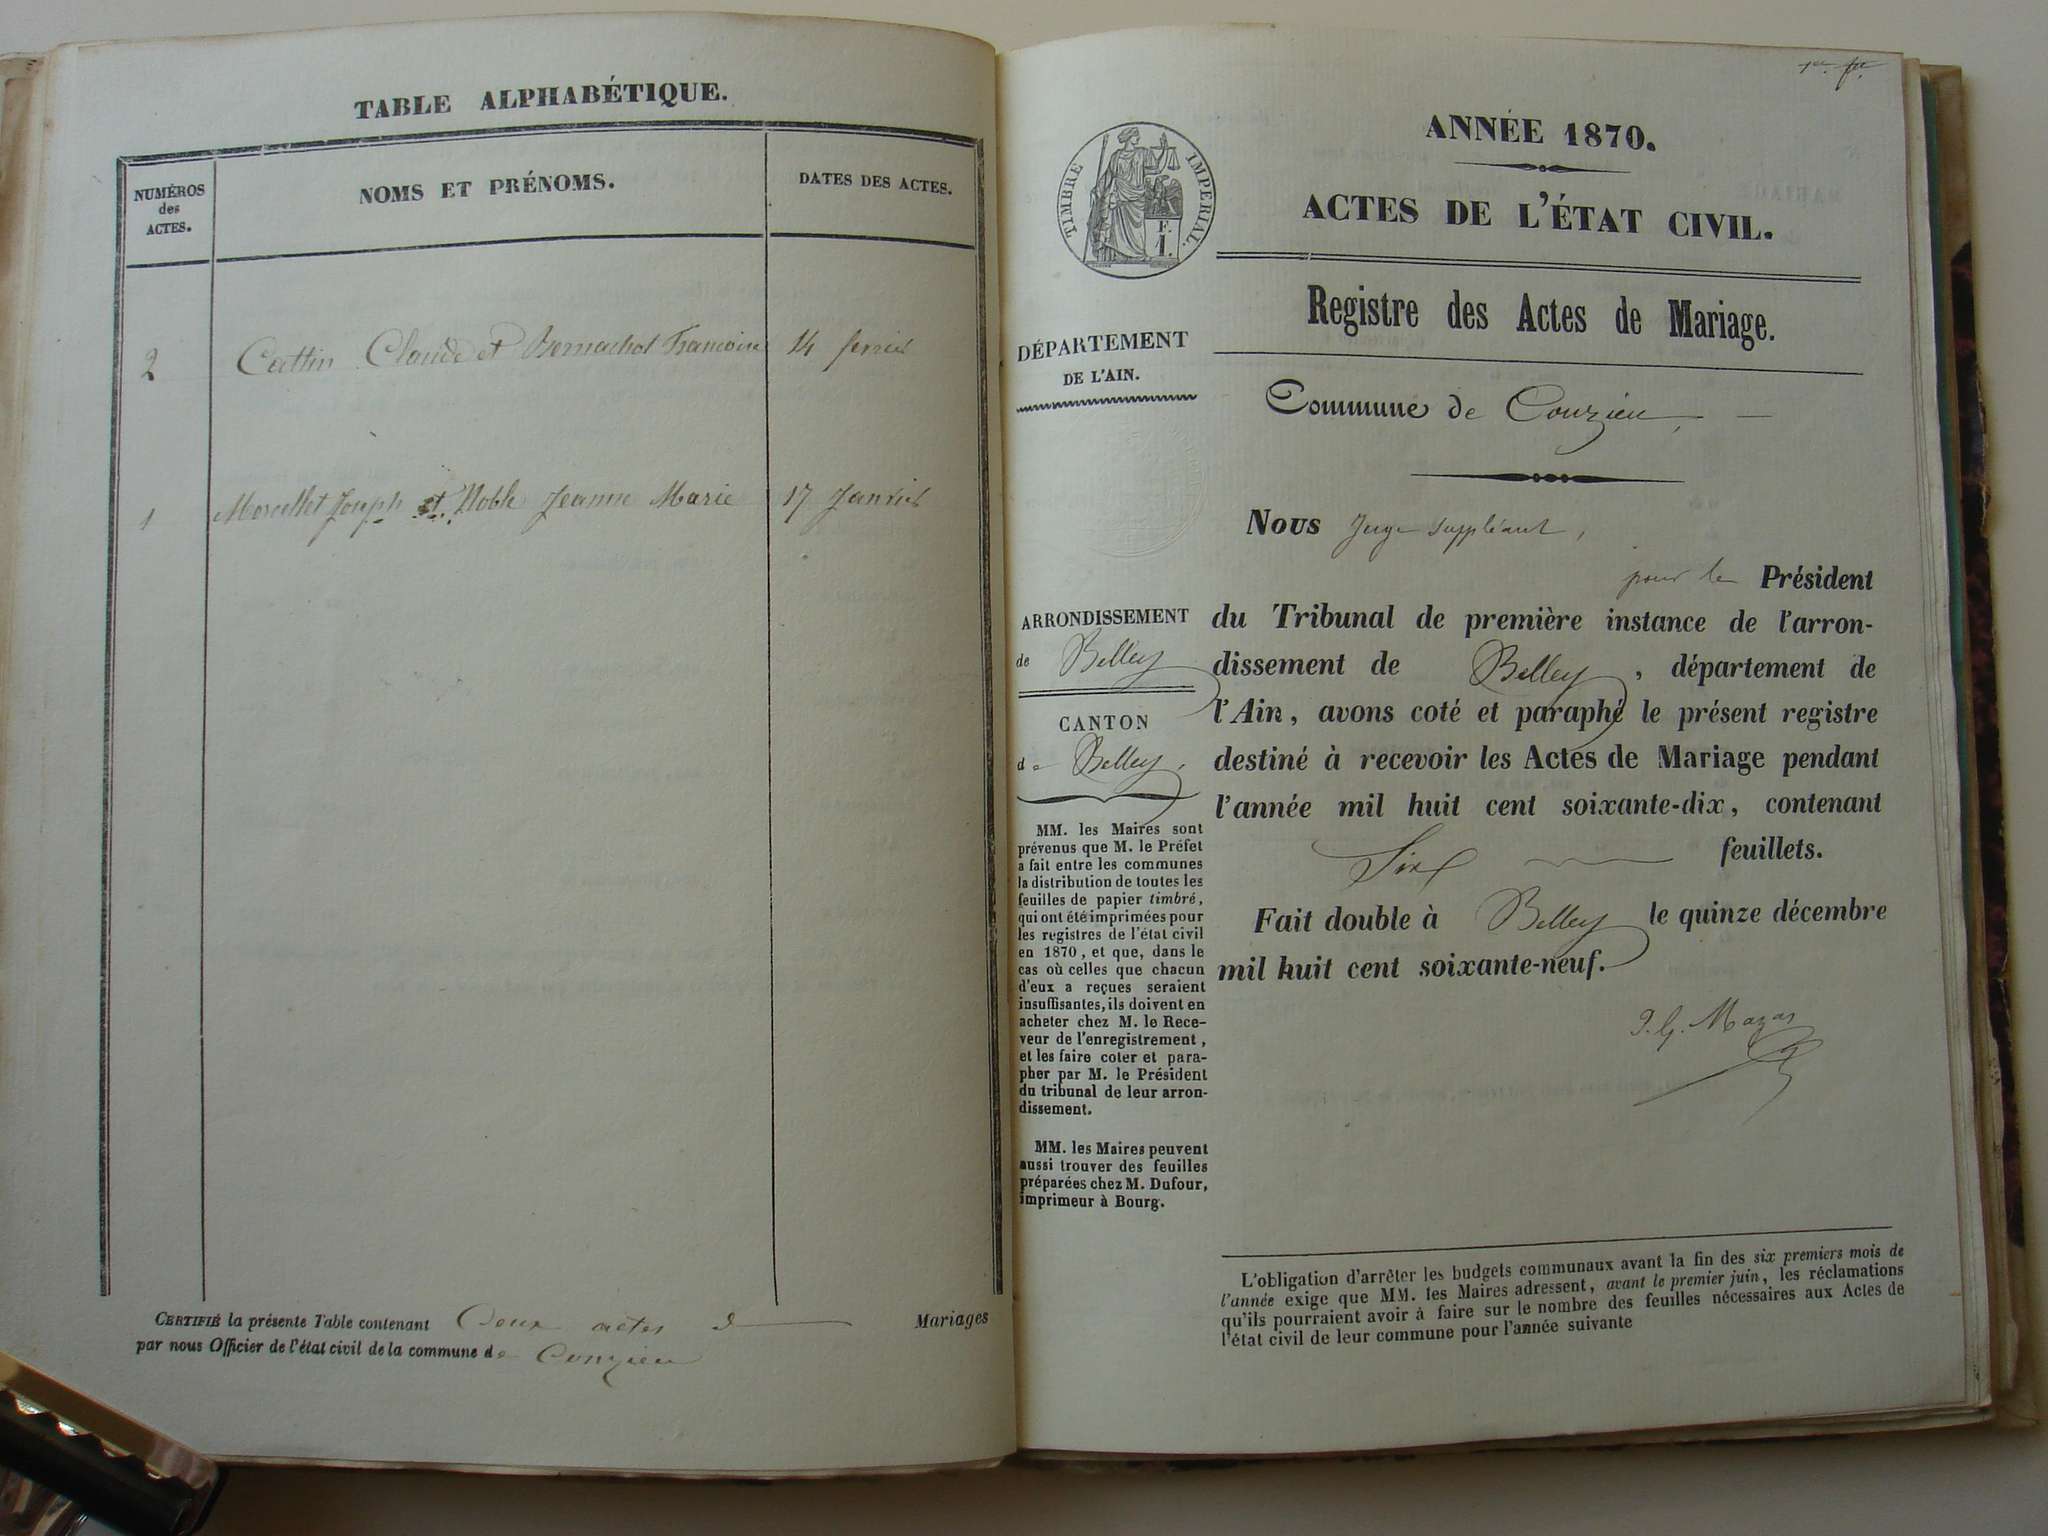 TABLE ALPHABÉTIQUE.
NUMÉROS
des
ACTES.
NOMS ET PRÉNOMS.
DATES DES ACTES.
2 Cattin Claude et Bernachot Francoise 14 fevrier
1 Morcellet Joseph et Noble Jeanne Marie 17 Janvier
CERTIFIÉ la présente Table contenant Deux actes d Mariages
par nous Officier de l'état civil de la commune de Conzieu
TIMBRE IMPERIAL.
F.
1.
DÉPARTEMENT
DE L'AIN.
ARRONDISSEMENT
de Belley
CANTON
de Belley.
MM. les Maires sont
prévenus que M. le Préfet
a fait entre les communes
la distribution de toutes les
feuilles de papier timbré,
qui ont été imprimées pour
les registres de l'état civil
en 1870, et que, dans le
cas où celles que chacun
d'eux a reçues seraient
insuffisantes, ils doivent en
acheter chez M. le Rece-
veur de l'enregistrement,
et les faire coter et para-
pher par M. le Président
du tribunal de leur arron-
dissement.
MM. les Maires peuvent
aussi trouver des feuilles
préparées chez M. Dufour,
imprimeur à Bourg.
ANNÉE 1870.
ACTES DE L'ÉTAT CIVIL.
Registre des Actes de Mariage.
Commune de Conzieu
Nous Juge suppléant,
pour le Président
du Tribunal de première instance de l'arron-
dissement de Belley, département de
l'Ain, avons coté et paraphé le présent registre
destiné à recevoir les Actes de Mariage pendant
l'année mil huit cent soixante-dix, contenant
Six feuillets.
Fait double à Belley le quinze décembre
mil huit cent soixante-neuf.
Mazas
L'obligation d'arrêter les budgets communaux avant la fin des six premiers mois de
l'année exige que MM. les Maires adressent, avant le premier juin, les réclamations
qu'ils pourraient avoir à faire sur le nombre des feuilles nécessaires aux Actes de
l'état civil de leur commune pour l'année suivante